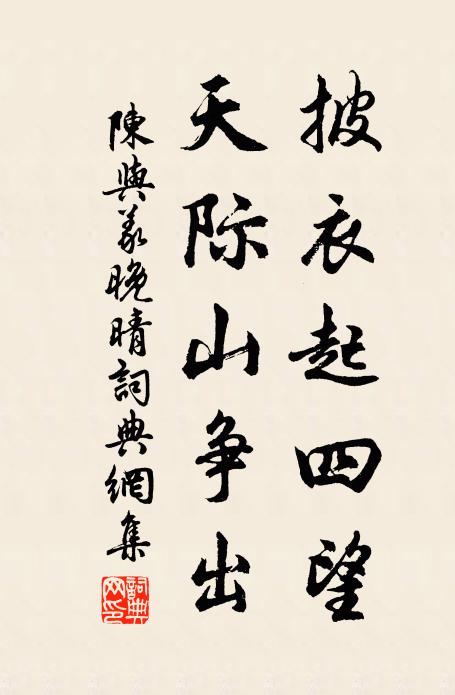 披衣起四望
天际山争出
陳與義晚晴詞典網集